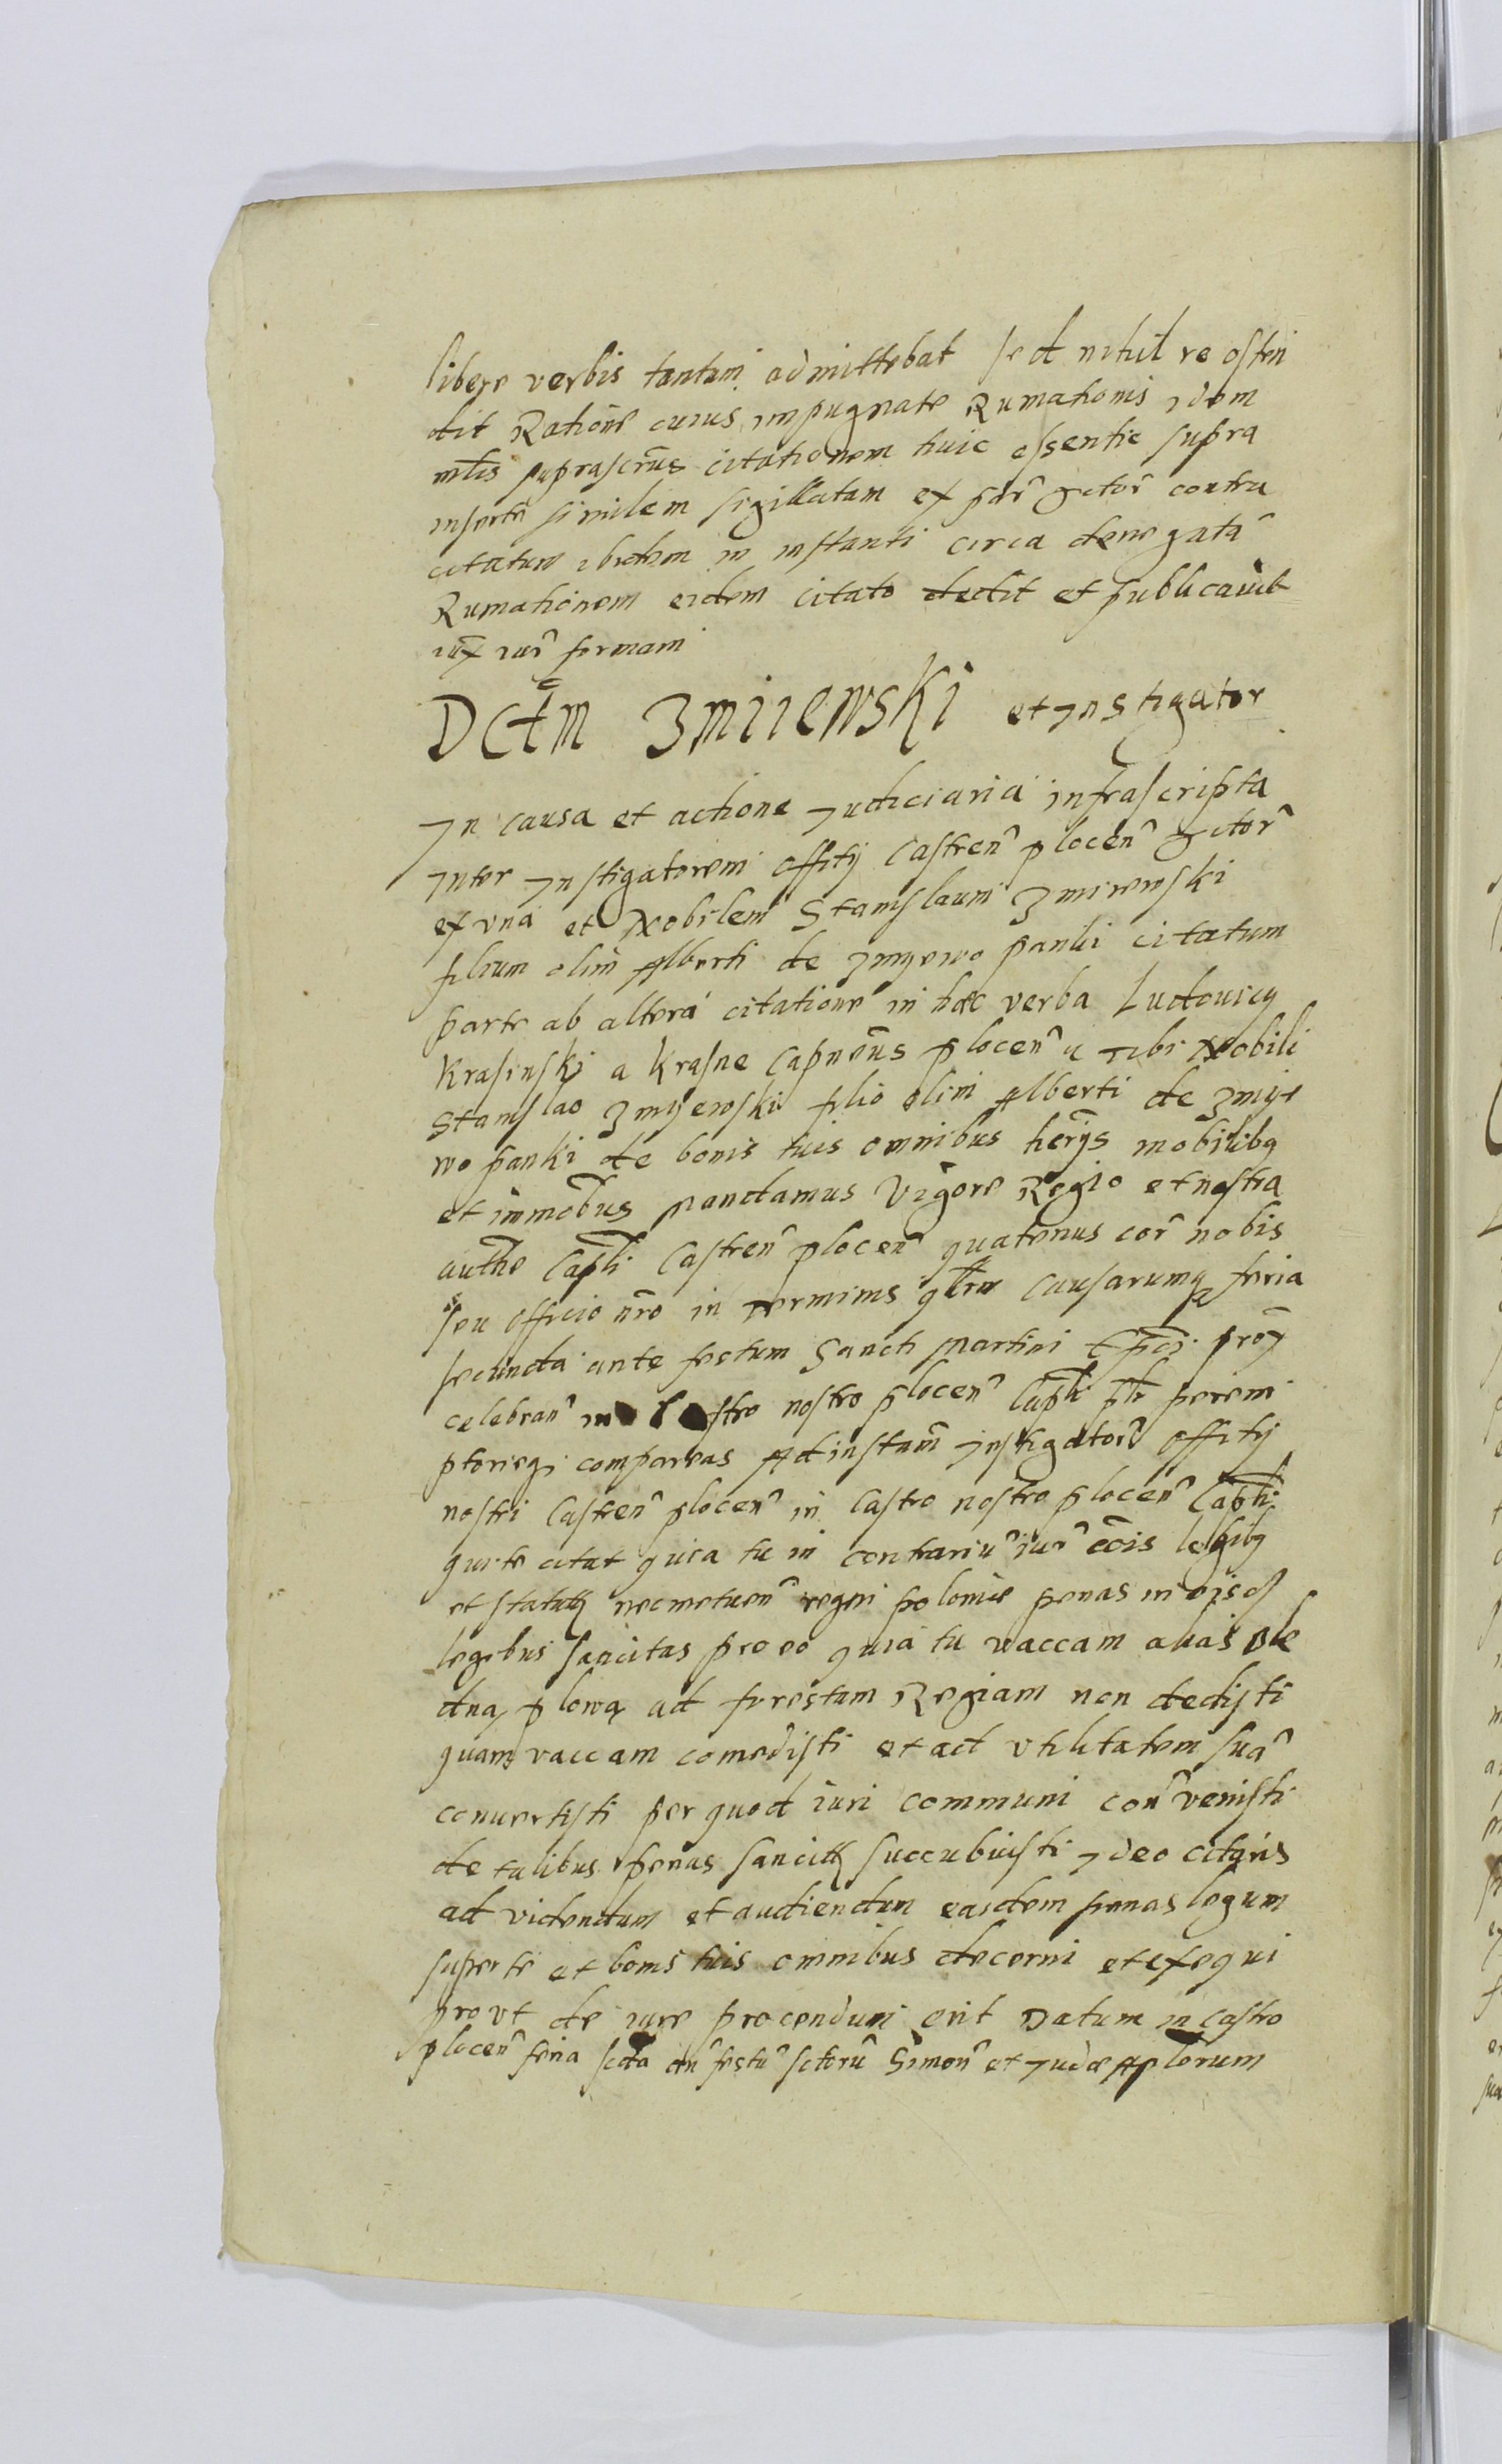 libere verbis tantum admittebat sed nihil re osten
dit Ratione cuius impugnate Rumationis idem
mlis suprascrus citationem huic essentie supra
inserte similem sigillatam ex par actor contra
citatum ibidem in instanti circa denegata
Rumationem eidem citato dedit et publicauit
iux iur formam
Dctm Zmiiewski et Instigator
In causa et actione Iudiciaria infrascripta
Inter Instigatorem offitij Castren plocen actor
ex vna et Nobilem Stanislaum Zmiiewski
filium olim Alberti de Zmyewo panki citatum
parte ab altera citatione in hæc verba Ludouicus
Krasinski a Krasne Capneus plocen tibi Nobili
Stanislao Zmyewski filio olim Alberti de Zmye
wo panki de bonis tuis omnibus herijs mobilibq
et immobus mandamus Vigore Regio et nostra
authe Capli Castren plocen quatenus cor nobis
seu officio nro in terminis qlrw Causarumq feria
secunda ante festum Sancti Martini prox
celebran in Castro nostro plocen Capli perem
ptorieq compareas Ad instam Instigator offitij
nostri Castren plocen in Castro nostro plocen Capli
qui te citat quia tu in contrariu iur cois legibq
et statutis nec metuen regni polonie penas in eisd
legibus sancitas pro eo quia tu vaccam alias Ble
dną plową ad forestam Regiam non dedisti
quam vaccam comedisti et ad vtilitatem sua
conuertisti per quod iuri communi con venisti
de talibus penas sancitis succubuisti Ideo citaris
ad videndum et audiendum easdem penas legum
super te et bonis tuis omnibus decerni et exequi
prout de iure procendum erit Datum in Castro
plocen feria scda an festu sctoru Simon et Iudæ Aplorum